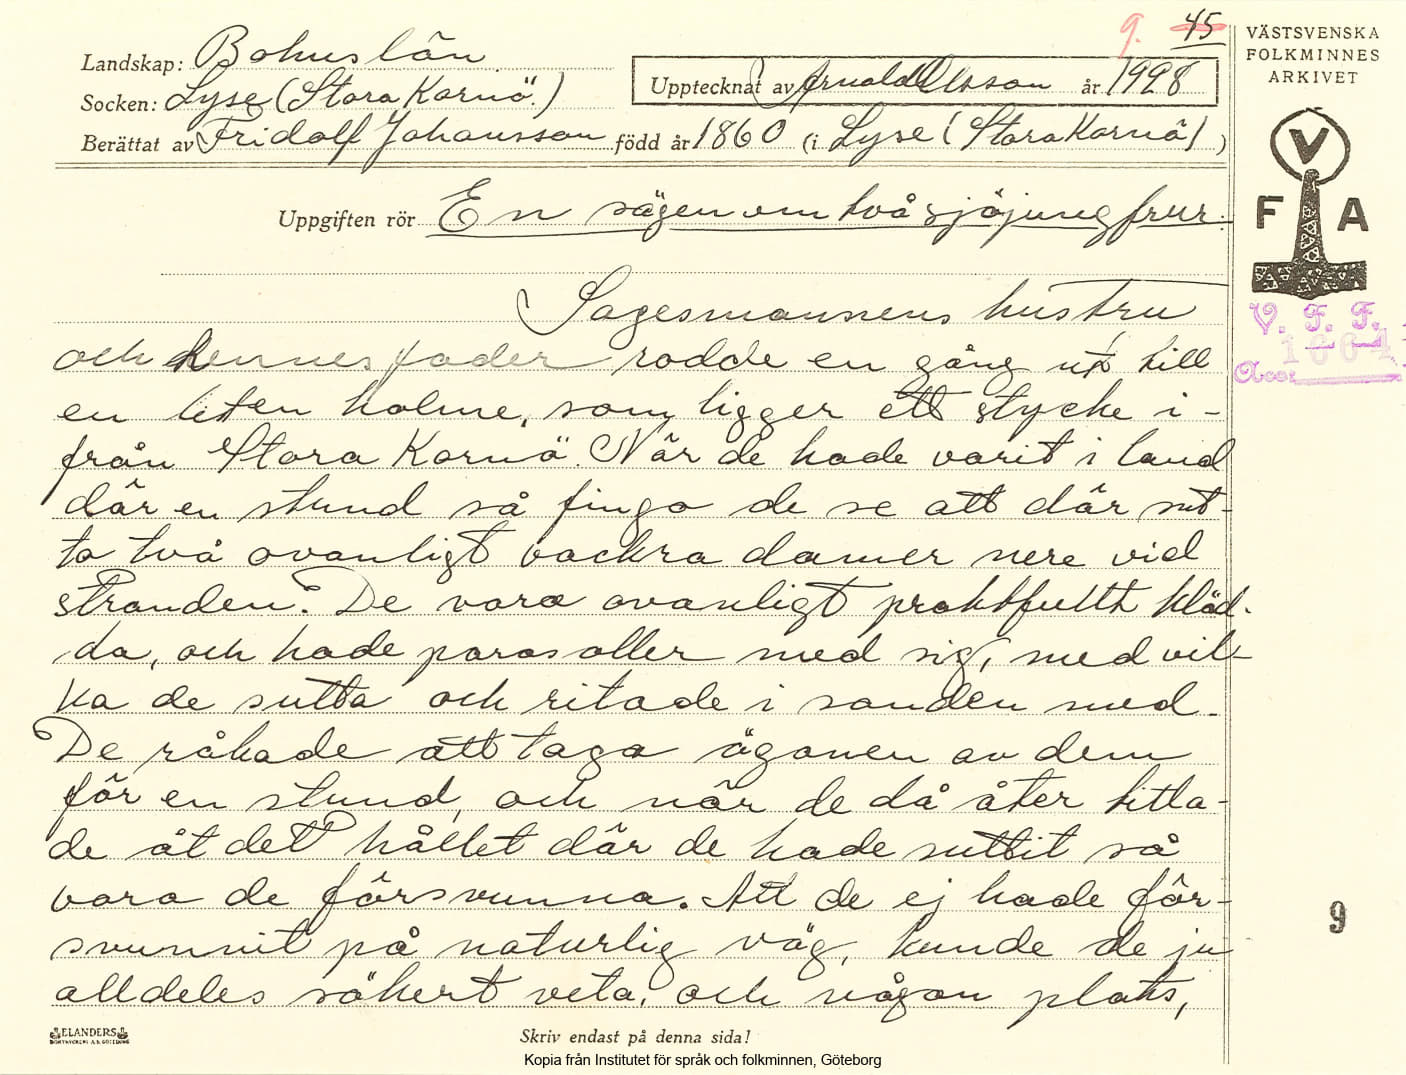 9. 45
Landskap: Bohuslän
Socken: Lyse (Stora Kornö.)
Upptecknat av Arnold Olsson år 1928
Berättat av Fridolf Johansson född år 1860 (i Lyse (Stora Kornö) )
VÄSTSVENSKA
FOLKMINNES
ARKIVET
V
F A
V. F. F.
Acc:
Uppgiften rör En sägen om två sjöjungfrur.
Sagesmannens hustru
och hennes fader rodde en gång ut till
en liten holme, som ligger ett stycke i-
från Stora Kornö. När de hade varit i land
där en stund så fingo de se att där sut-
to två ovanligt vackra damer nere vid
stranden. De voro ovanligt praktfullt kläd-
da, och hade parasoller med sig, med vil-
ka de sutto och ritade i sanden med.
De råkade att taga ögonen av dem
för en stund, och när de då åter titta-
de åt det hållet där de hade suttit så
voro de försvunna. Att de ej hade för-
svunnit på naturlig väg, kunde de ju
alldeles säkert veta, och någon plats,
9
ELANDERS
BOKTRYCKERI A.B. GÖTEBORG
Skriv endast på denna sida!
Kopia från Institutet för språk och folkminnen, Göteborg